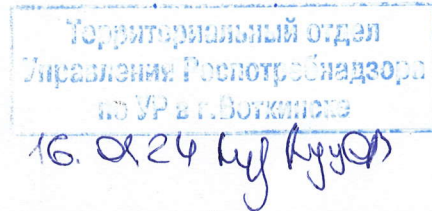 Территориальный отдел
Управления Роспотребнадзора
по УР в г. Воткинске
16. 24